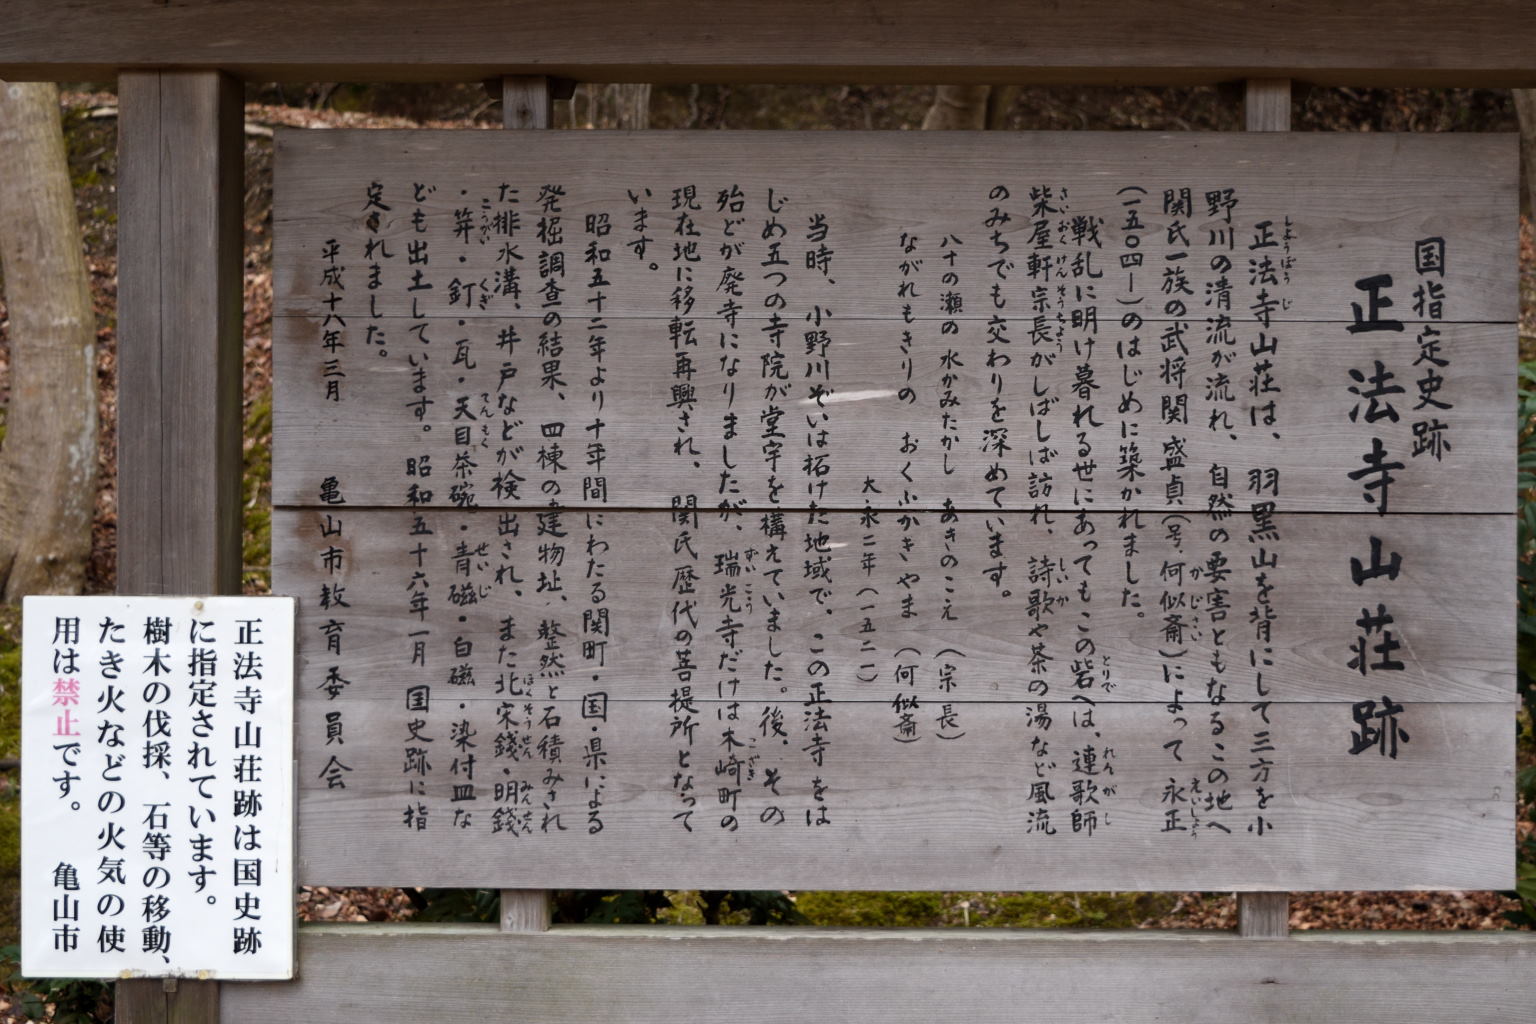 国指定史跡
正法寺山荘跡
正法寺山荘は、羽黒山を背にして三方を小
野川の清流が流れ、自然の要害ともなるこの地へ
関氏一族の武将関盛貞(号、何似斎)によって永正
(一五〇四ー)のはじめに築かれました。
戦乱に明け暮れる世にあってもこの砦へは、連歌師
柴屋軒宗長がしばしば訪れ、詩歌や茶の湯など風流
のみちでも交わりを深めています。
八十の瀬の 水かみたかし あきのこえ (宗長)
ながれもきりの おくふかきやま (何似斎)
大永二年(一五二二)
当時、小野川ぞいは拓けた地域で、この正法寺をは
じめ五つの寺院が堂宇を構えていました。後、その
殆どが廃寺になりましたが、瑞光寺だけは木崎町の
現在地に移転再興され、関氏歴代の菩提所となって
います。
昭和五十二年より十年間にわたる関町・国・県による
発掘調査の結果、四棟の建物址、整然と石積みされ
た排水溝、井戸などが検出され、また北宋銭・明銭
・笄・釘・瓦・天目茶碗・青磁・白磁・染付皿な
ども出土しています。昭和五十六年一月 国史跡に指
定されました。
平成十八年三月 亀山市教育委員会
正法寺山荘跡は国史跡
に指定されています。
樹木の伐採、石等の移動、
たき火などの火気の使
用は禁止です。 亀山市